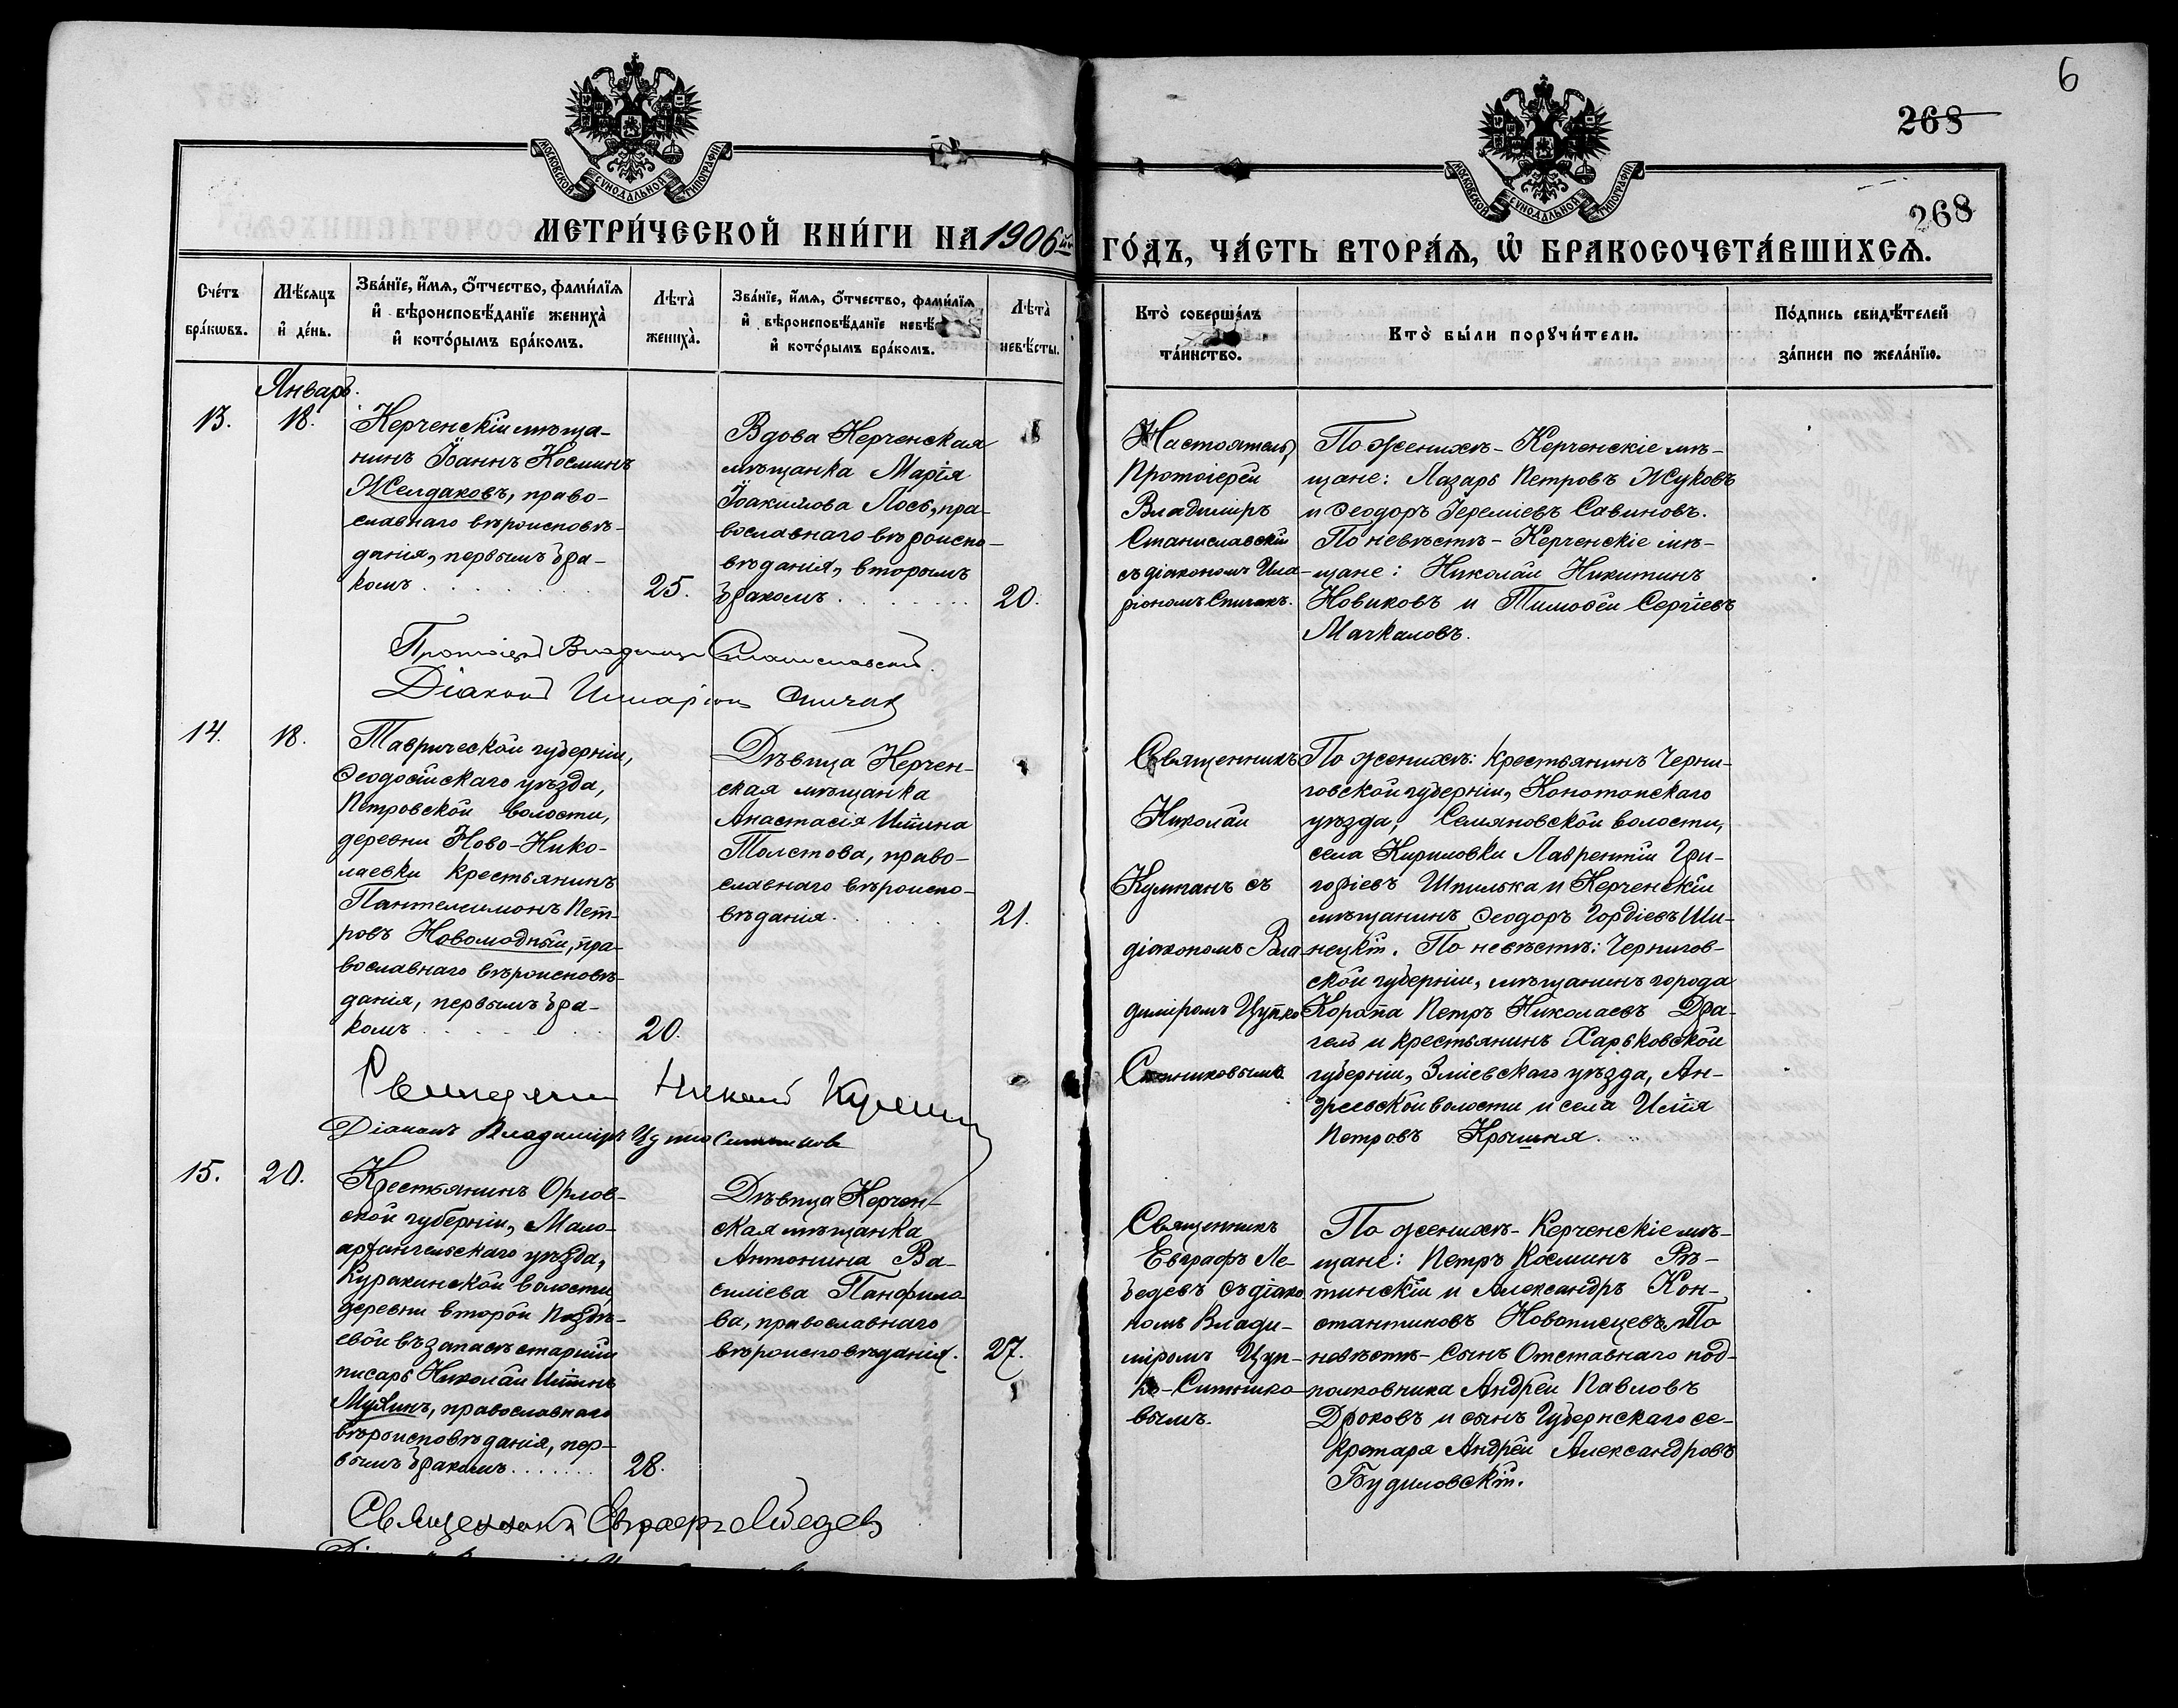 6
268
268
МОСКОВСКОЙ СѴНОДАЛЬНОЙ ТИПОГРАФІИ
МОСКОВСКОЙ СѴНОДАЛЬНОЙ ТИПОГРАФІИ
МЕТРИ́ЧЕСКОЙ КНИ́ГИ НА 1906й
ГО́ДЪ, ЧА́СТЬ ВТОРА́Ѧ, Ѡ҆ БРАКОСОЧЕТА́ВШИХСѦ.
Сче́тъ
бра́кѡвъ.
Мѣ́сѧцъ
и҆ де́нь.
Зва́нїе, и҆́мѧ, ѻ҆́тчество, фами́лїѧ
и҆ вѣроисповѣ́данїе жениха̀
и҆ кото́рымъ бра́комъ.
Лѣта̀
жениха̀.
Зва́нїе, и҆́мѧ, ѻ҆́тчество, фами́лїѧ
и҆ вѣроисповѣ́данїе невѣ́
и҆ кото́рымъ бра́комъ.
Лѣта̀
невѣ́сты.
Кто̀ соверша́лъ
та́инство.
Кто̀ бы́ли порꙋчи́тели.
По́дпись свидѣ́телей
за́писи по жела́нїю.
Январь.
13.
18.
Керченскій мѣща-
нинъ Іоаннъ Косминъ
Желдаковъ, право-
славнаго вѣроисповѣ-
данія, первымъ бра-
комъ . . . . . . .
25.
Вдова Керченская
мѣщанка Марія
Іоакимова Лось, пра-
вославнаго вѣроиспо-
вѣданія, вторымъ
бракомъ . . . . . .
20.
Настоятель,
Протоіерей
Владиміръ
Станиславскій
съ діакономъ Ила-
ріономъ Спичакъ.
По женихѣ - Керченскіе мѣ-
щане: Лазарь Петровъ Жуковъ
и Ѳеодоръ Іереміевъ Савиновъ.
По невѣстѣ - Керченскіе мѣ-
щане: Николай Никитинъ
Новиковъ и Тимоѳей Сергіевъ
Мачкаловъ.
Протоіерей Владимиръ Станиславскій.
Діаконъ Илларіонъ Спичак
14.
18.
Таврической губерніи,
Ѳеодосійскаго уѣзда,
Петровской волости,
деревни Ново-Нико-
лаевки крестьянинъ
Пантелеимонъ Пет-
ровъ Новомодный, пра-
вославнаго вѣроисповѣ-
данія, первымъ бра-
комъ . . . . . .
20.
Дѣвица Керчен-
ская мѣщанка
Анастасія Иліина
Толстова, право-
славнаго вѣроиспо-
вѣданія. . . . .
21.
Священникъ
Николай
Кулипанъ съ
діакономъ Вла-
диміромъ Цупко
Ситниковымъ
По женихѣ: крестьянинъ Черни-
говской губерніи, Конотопскаго
уѣзда, Семяновской волости,
села Кириловки Лаврентій Гри-
горіевъ Шпилька и Керченскій
мѣщанинъ Ѳеодоръ Гордіевъ Ши-
нецкій. По невѣстѣ: Чернигов-
ской губерніи, мѣщанинъ города
Коропа Петръ Николаевъ Дра-
гель и крестьянинъ Харьковской
губерніи, Зміевскаго уѣзда, Ан-
дреевской волости и села Илія
Петровъ Крышня.
Священникъ Николай
Діаконъ Владиміръ Цупко Ситниковъ
15.
20.
Крестьянинъ Орлов-
ской губерніи, Мало-
архангельскаго уѣзда,
Куракинской волости
деревни второй Поздѣ-
евой въ запасѣ старшій
писарь Николай Иліинъ
Мудлинъ, православнаго
вѣроисповѣданія, пер-
вымъ бракомъ . . . . . . .
28.
Дѣвица Керчен-
ская мѣщанка
Антонина Ва-
силіева Панфило
ва, православнаго
вѣроисповѣданія.
27.
Священникъ
Евграфъ Ле-
бедевъ съ діако
номъ Влади-
міромъ Цуп-
ко-Ситнико-
вымъ.
По женихѣ - Керченскіе мѣ-
щане: Петръ Косминъ Рѣ-
тинскій и Александръ Кон-
стантиновъ Новописцевъ. По
невѣстѣ - сынъ Отставнаго под-
полковника Андрей Павловъ
Дроковъ и сынъ Губернскаго се-
кретаря Андрей Александровъ
Будиловскій.
Священникъ Евграфъ Лебедевъ